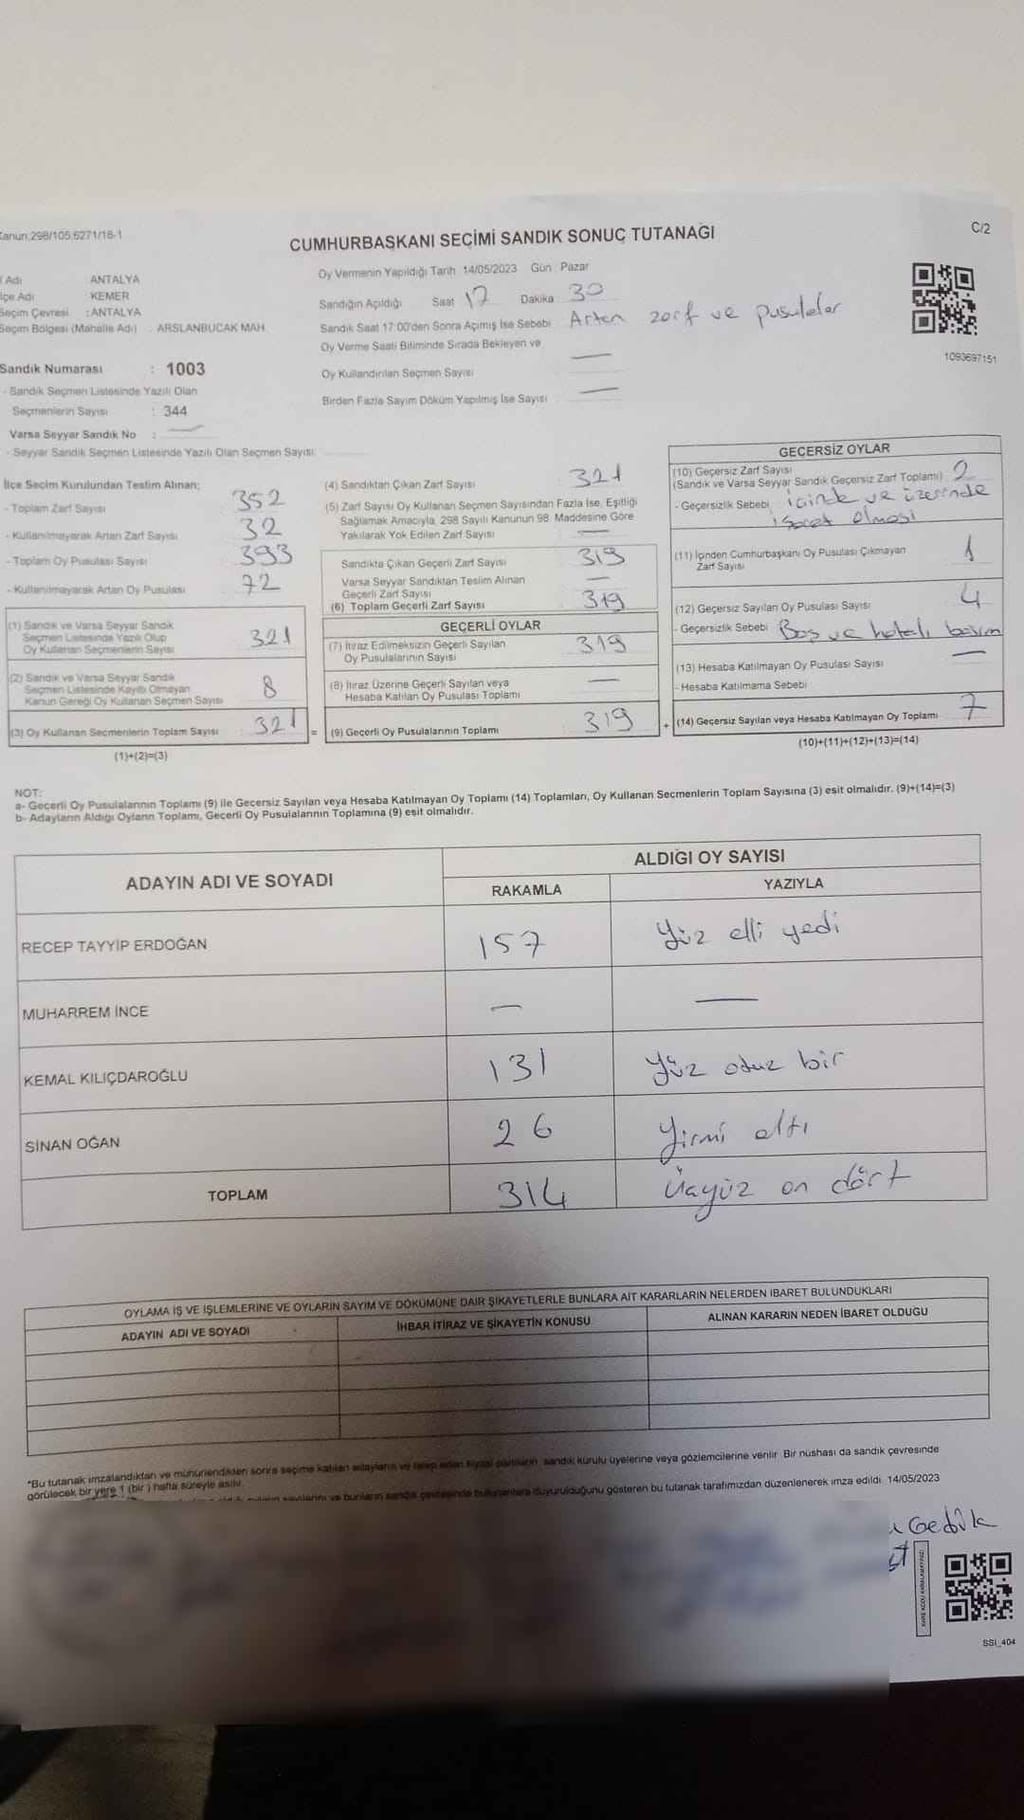 Kanun;298/105,6271/18-1
C/2
CUMHURBAŞKANI SEÇİMİ SANDIK SONUÇ TUTANAĞI
Adı ANTALYA
lçe Adı KEMER
Seçim Çevresi :ANTALYA
Seçim Bölgesi (Mahalle Adı) ARSLANBUCAK MAH.
Sandık Numarası : 1003
- Sandık Seçmen Listesinde Yazılı Olan
Seçmenlerin Sayısı : 344
Varsa Seyyar Sandık No : —
- Seyyar Sandık Seçmen Listesinde Yazılı Olan Seçmen Sayısı
Oy Vermenin Yapıldığı Tarih 14/05/2023 Gün : Pazar
Sandığın Açıldığı Saat 17 Dakika 30
Sandık Saat 17:00'den Sonra Açımış İse Sebebi Artan zarf ve pusulalar
Oy Verme Saati Bitiminde Sırada Bekleyen ve
Oy Kullandırılan Seçmen Sayısı —
Birden Fazla Sayım Döküm Yapılmış İse Sayısı —
1093697151
İlçe Seçim Kurulundan Teslim Alınan;
- Toplam Zarf Sayısı 352
- Kullanılmayarak Artan Zarf Sayısı 32
- Toplam Oy Pusulası Sayısı 393
- Kullanılmayarak Artan Oy Pusulası 72
(1) Sandık ve Varsa Seyyar Sandık
Seçmen Listesinde Yazılı Olup
Oy Kullanan Seçmenlerin Sayısı 321
(2) Sandık ve Varsa Seyyar Sandık
Seçmen Listesinde Kayıtlı Olmayan
Kanun Gereği Oy Kullanan Seçmen Sayısı 8
(3) Oy Kullanan Seçmenlerin Toplam Sayısı 321
(1)+(2)=(3)
(4) Sandıktan Çıkan Zarf Sayısı 321
(5) Zarf Sayısı Oy Kullanan Seçmen Sayısından Fazla İse, Eşitliği
Sağlamak Amacıyla, 298 Sayılı Kanunun 98. Maddesine Göre
Yakılarak Yok Edilen Zarf Sayısı —
Sandıkta Çıkan Geçerli Zarf Sayısı 319
Varsa Seyyar Sandıktan Teslim Alınan
Geçerli Zarf Sayısı —
(6) Toplam Geçerli Zarf Sayısı 319
GEÇERLİ OYLAR
(7) İtiraz Edilmeksizin Geçerli Sayılan
Oy Pusulalarının Sayısı 319
(8) İtiraz Üzerine Geçerli Sayılan veya
Hesaba Katılan Oy Pusulası Toplamı —
= (9) Geçerli Oy Pusulalarının Toplamı 319
GEÇERSİZ OYLAR
(10) Geçersiz Zarf Sayısı
(Sandık ve Varsa Seyyar Sandık Geçersiz Zarf Toplamı) 2
- Geçersizlik Sebebi içinde ve üzerinde
işaret olması
(11) İçinden Cumhurbaşkanı Oy Pusulası Çıkmayan
Zarf Sayısı 1
(12) Geçersiz Sayılan Oy Pusulası Sayısı 4
- Geçersizlik Sebebi Boş ve hatalı basım
(13) Hesaba Katılmayan Oy Pusulası Sayısı —
- Hesaba Katılmama Sebebi
+ (14) Geçersiz Sayılan veya Hesaba Katılmayan Oy Toplamı 7
(10)+(11)+(12)+(13)=(14)
NOT:
a- Geçerli Oy Pusulalarının Toplamı (9) ile Geçersiz Sayılan veya Hesaba Katılmayan Oy Toplamı (14) Toplamları, Oy Kullanan Seçmenlerin Toplam Sayısına (3) eşit olmalıdır. (9)+(14)=(3)
b- Adayların Aldığı Oyların Toplamı, Geçerli Oy Pusulalarının Toplamına (9) eşit olmalıdır.
ADAYIN ADI VE SOYADI
ALDIĞI OY SAYISI
RAKAMLA YAZIYLA
RECEP TAYYİP ERDOĞAN 157 Yüz elli yedi
MUHARREM İNCE — —
KEMAL KILIÇDAROĞLU 131 Yüz otuz bir
SİNAN OĞAN 26 Yirmi altı
TOPLAM 314 Üçyüz on dört
OYLAMA İŞ VE İŞLEMLERİNE VE OYLARIN SAYIM VE DÖKÜMÜNE DAİR ŞİKAYETLERLE BUNLARA AİT KARARLARIN NELERDEN İBARET BULUNDUKLARI
ADAYIN ADI VE SOYADI İHBAR İTİRAZ VE ŞİKAYETİN KONUSU ALINAN KARARIN NEDEN İBARET OLDUĞU
*Bu tutanak imzalandıktan ve mühürlendikten sonra seçime katılan adayların ve talep eden siyasi partilerin sandık kurulu üyelerine veya gözlemcilerine verilir. Bir nüshası da sandık çevresinde
görülecek bir yere 1 (bir) hafta süreyle asılır.
duyurulduğunu gösteren bu tutanak tarafımızdan düzenlenerek imza edildi. 14/05/2023
Gedik
SSI_404